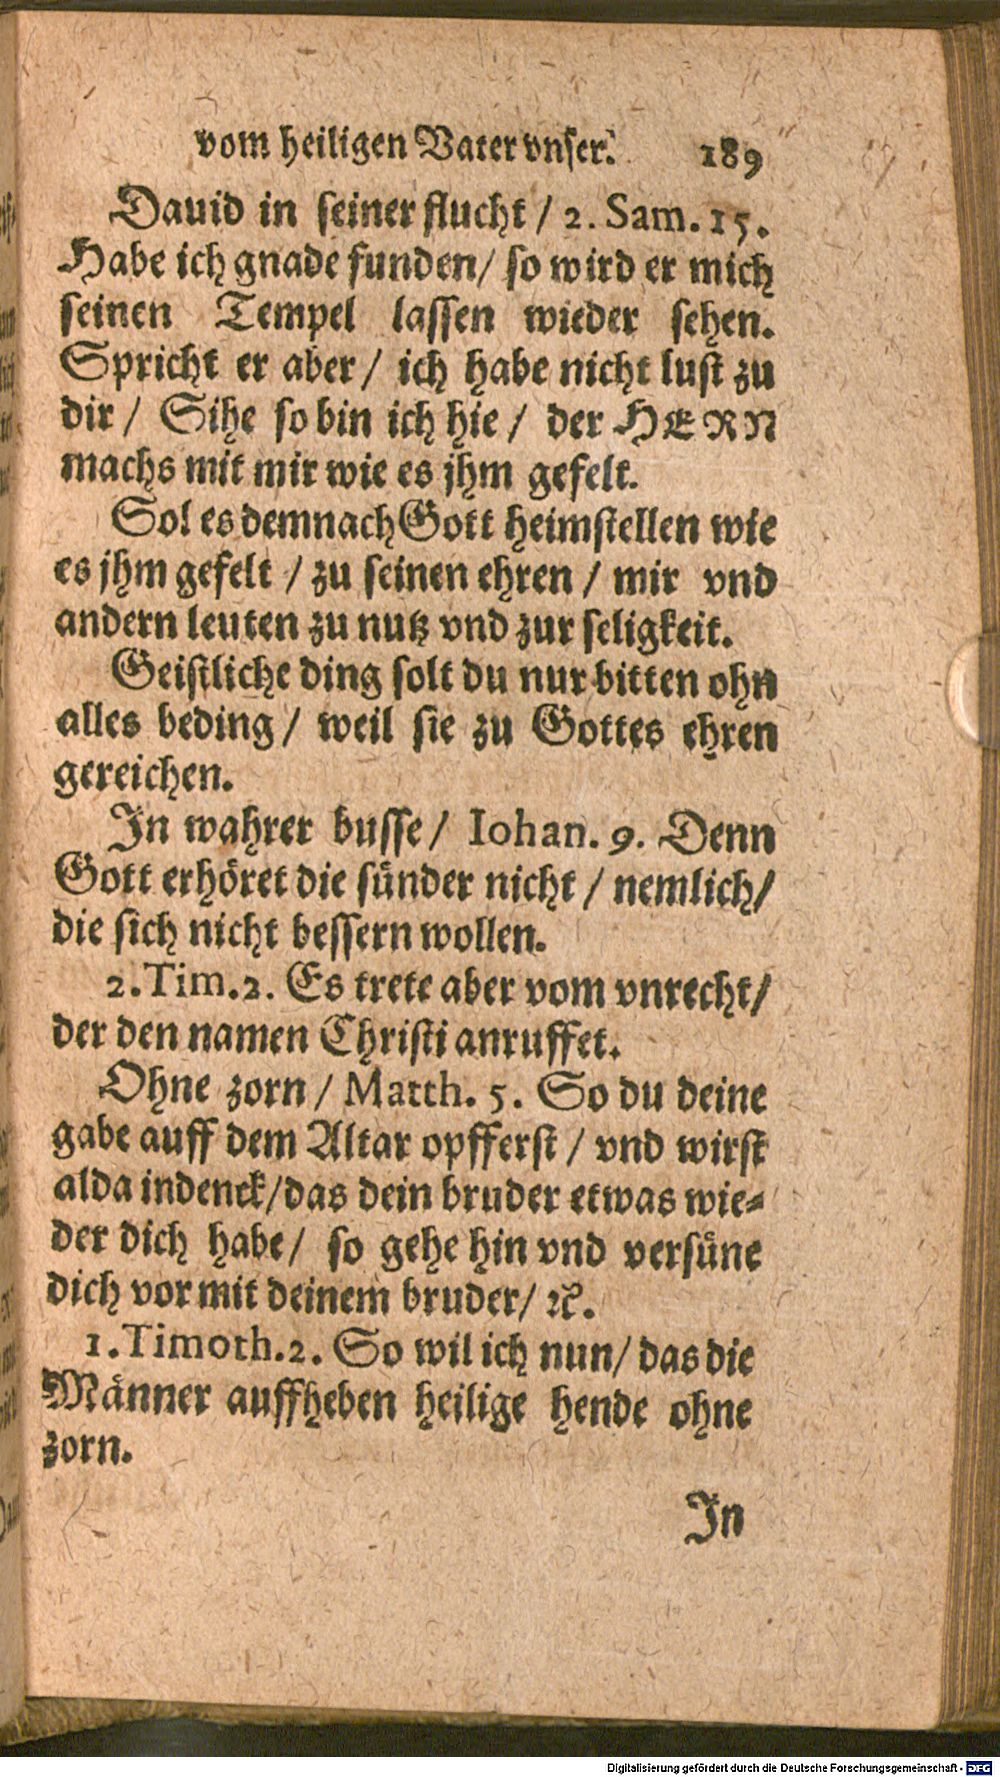 vom heiligen Vater vnser. 189
Dauid in seiner flucht / 2. Sam. 15.
Habe ich gnade funden / so wird er mich
seinen Tempel lassen wieder sehen.
Spricht er aber / ich habe nicht lust zu
dir / Sihe so bin ich hie / der HERR
machs mit mir wie es jhm gefelt.
Sol es demnach Gott heimstellen wie
es jhm gefelt / zu seinen ehren / mir vnd
andern leuten zu nutz vnd zur seligkeit.
Geistliche ding solt du nur bitten ohn
alles beding / weil sie zu Gottes ehren
gereichen.
In wahrer busse / Iohan. 9. Denn
Gott erhöret die sünder nicht / nemlich /
die sich nicht bessern wollen.
2. Tim. 2. Es trete aber vom vnrecht /
der den namen Christi anruffet.
Ohne zorn / Matth. 5. So du deine
gabe auff dem Altar opfferst / vnd wirst
alda indenck / das dein bruder etwas wie=
der dich habe / so gehe hin vnd versüne
dich vor mit deinem bruder / ꝛc.
1. Timoth. 2. So wil ich nun / das die
Männer auffheben heilige hende ohne
zorn.
In
Digitalisierung gefördert durch die Deutsche Forschungsgemeinschaft - DFG